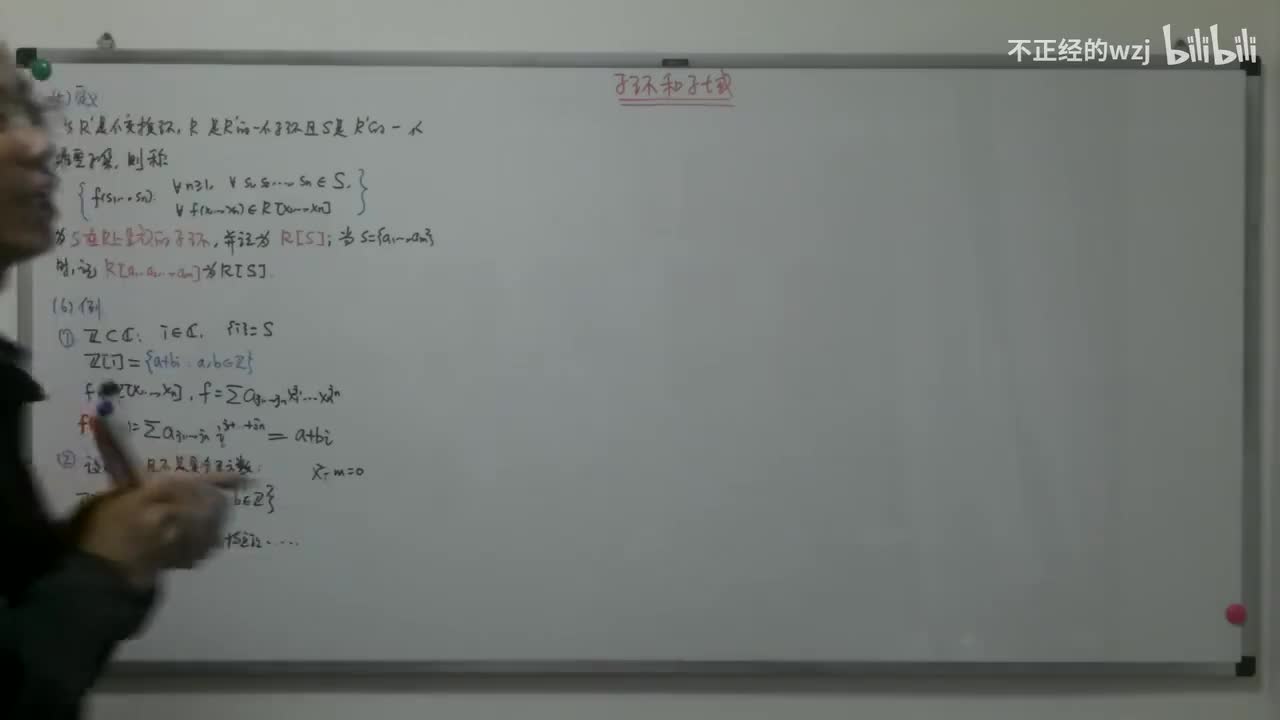 不正经的wzj bilibili
子环和子域
(5) 定义
当R'是个交换环, R 是R'的一个子环且S是 R'的一个
非空子集, 则称
{ f(s₁,…,sₙ): ∀n≥1, ∀ s₁, s₂, …, sₙ ∈ S,
∀ f(x₁,…,xₙ) ∈ R[x₁,…,xₙ] }
为 S在R上生成的子环, 并记为 R[S]; 当 S={a₁,…,aₘ}
时, 记 R[a₁, a₂, …, aₘ] 为 R[S].
(6) 例
① ℤ⊂ℂ, i∈ℂ, {i}=S
ℤ[i] = {a+bi : a,b∈ℤ}
f [x₁,…,xₙ], f = Σa
= Σa = a+bi
② 设 且不是完全平方数: x²-m=0
b∈ℤ}
……